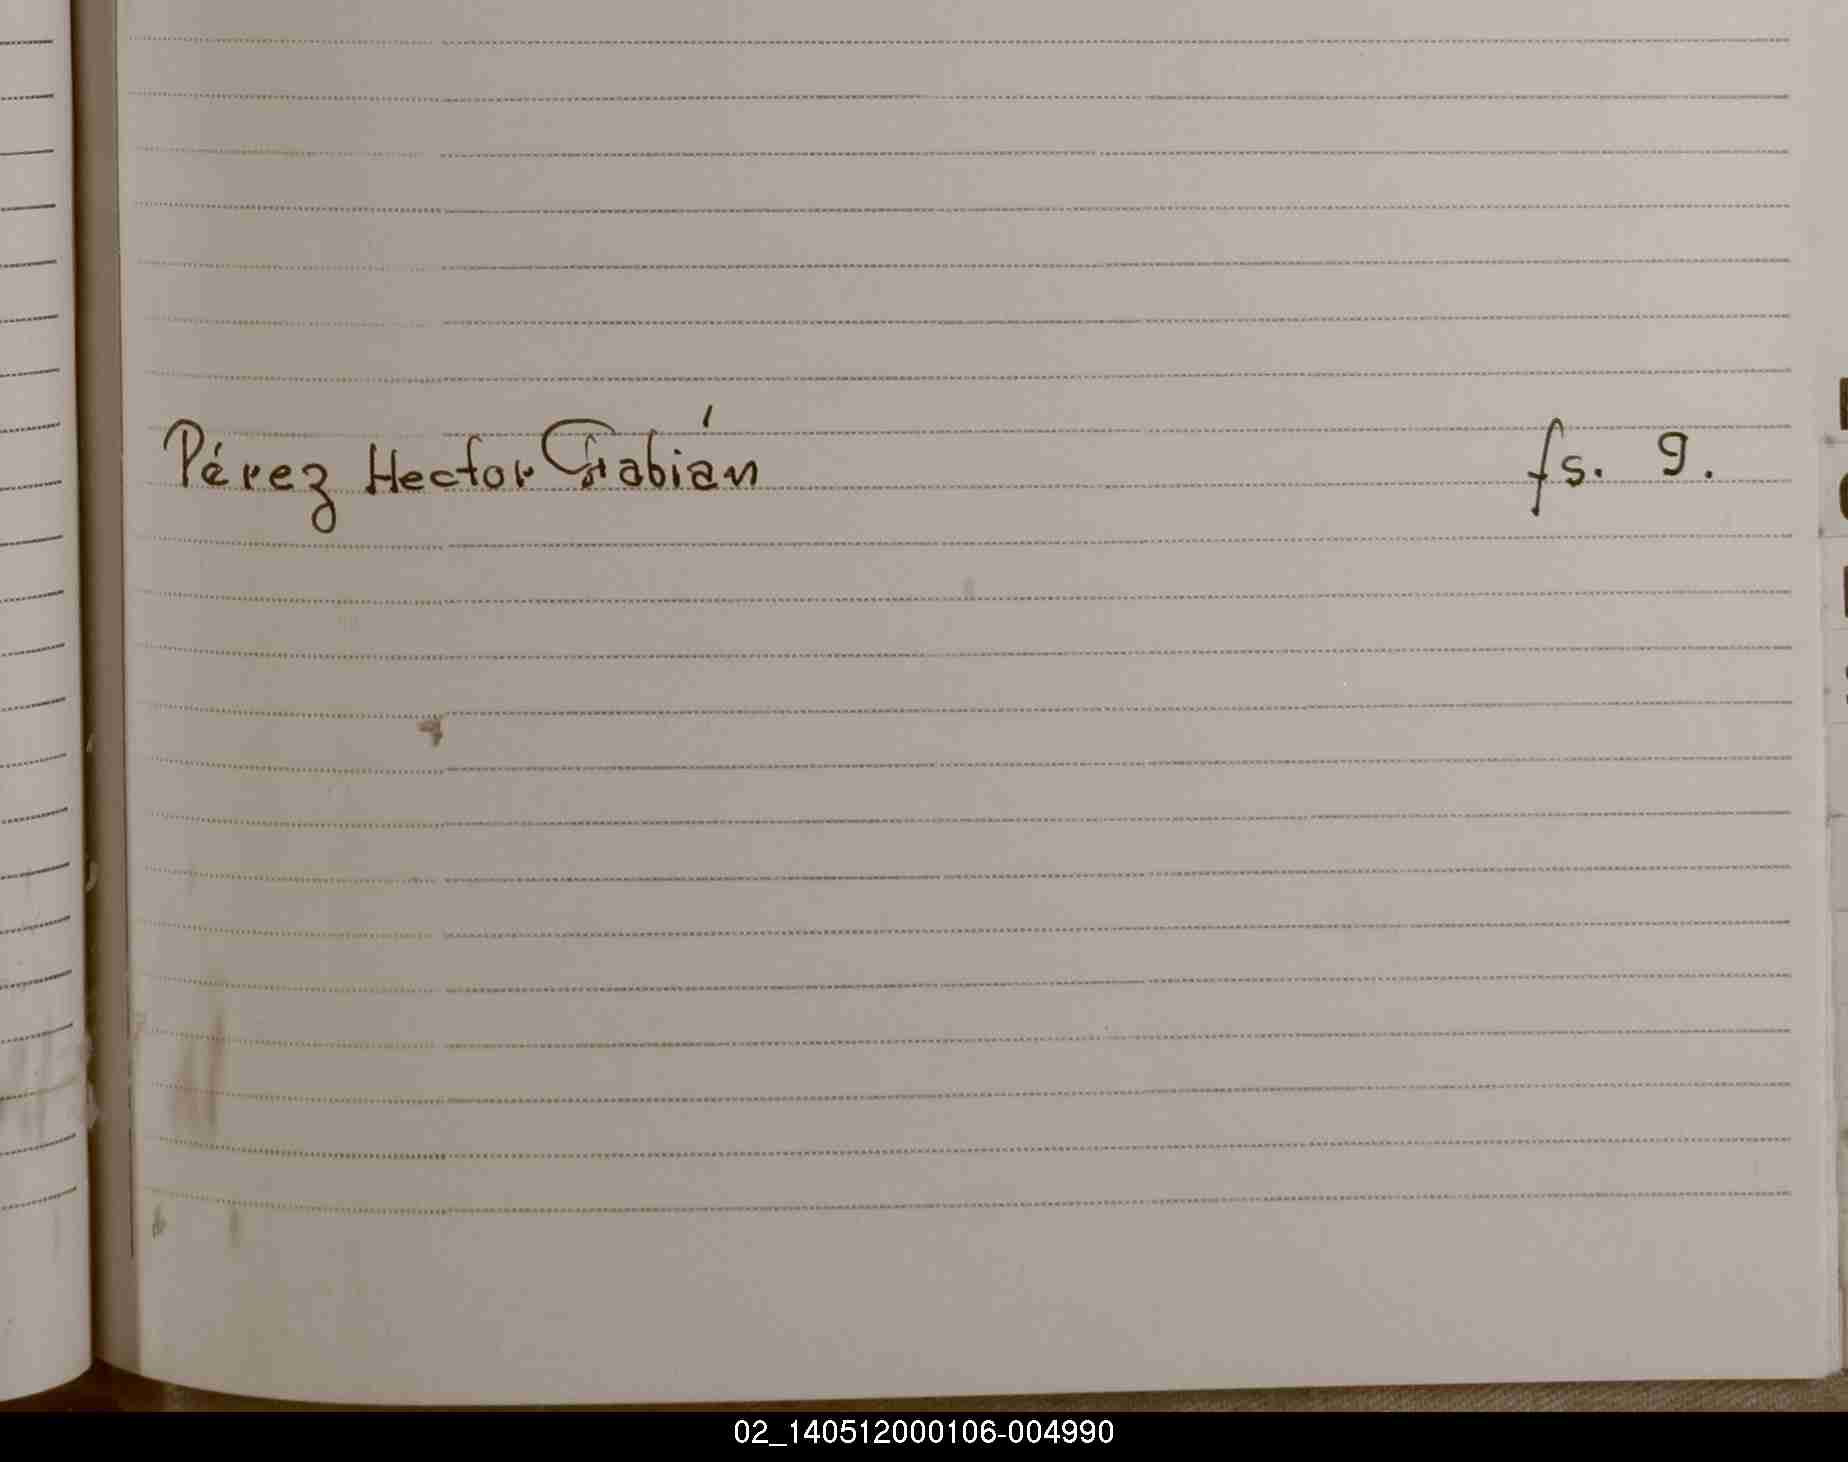 Pérez Hector Fabián fs. 9.
02_140512000106-004990